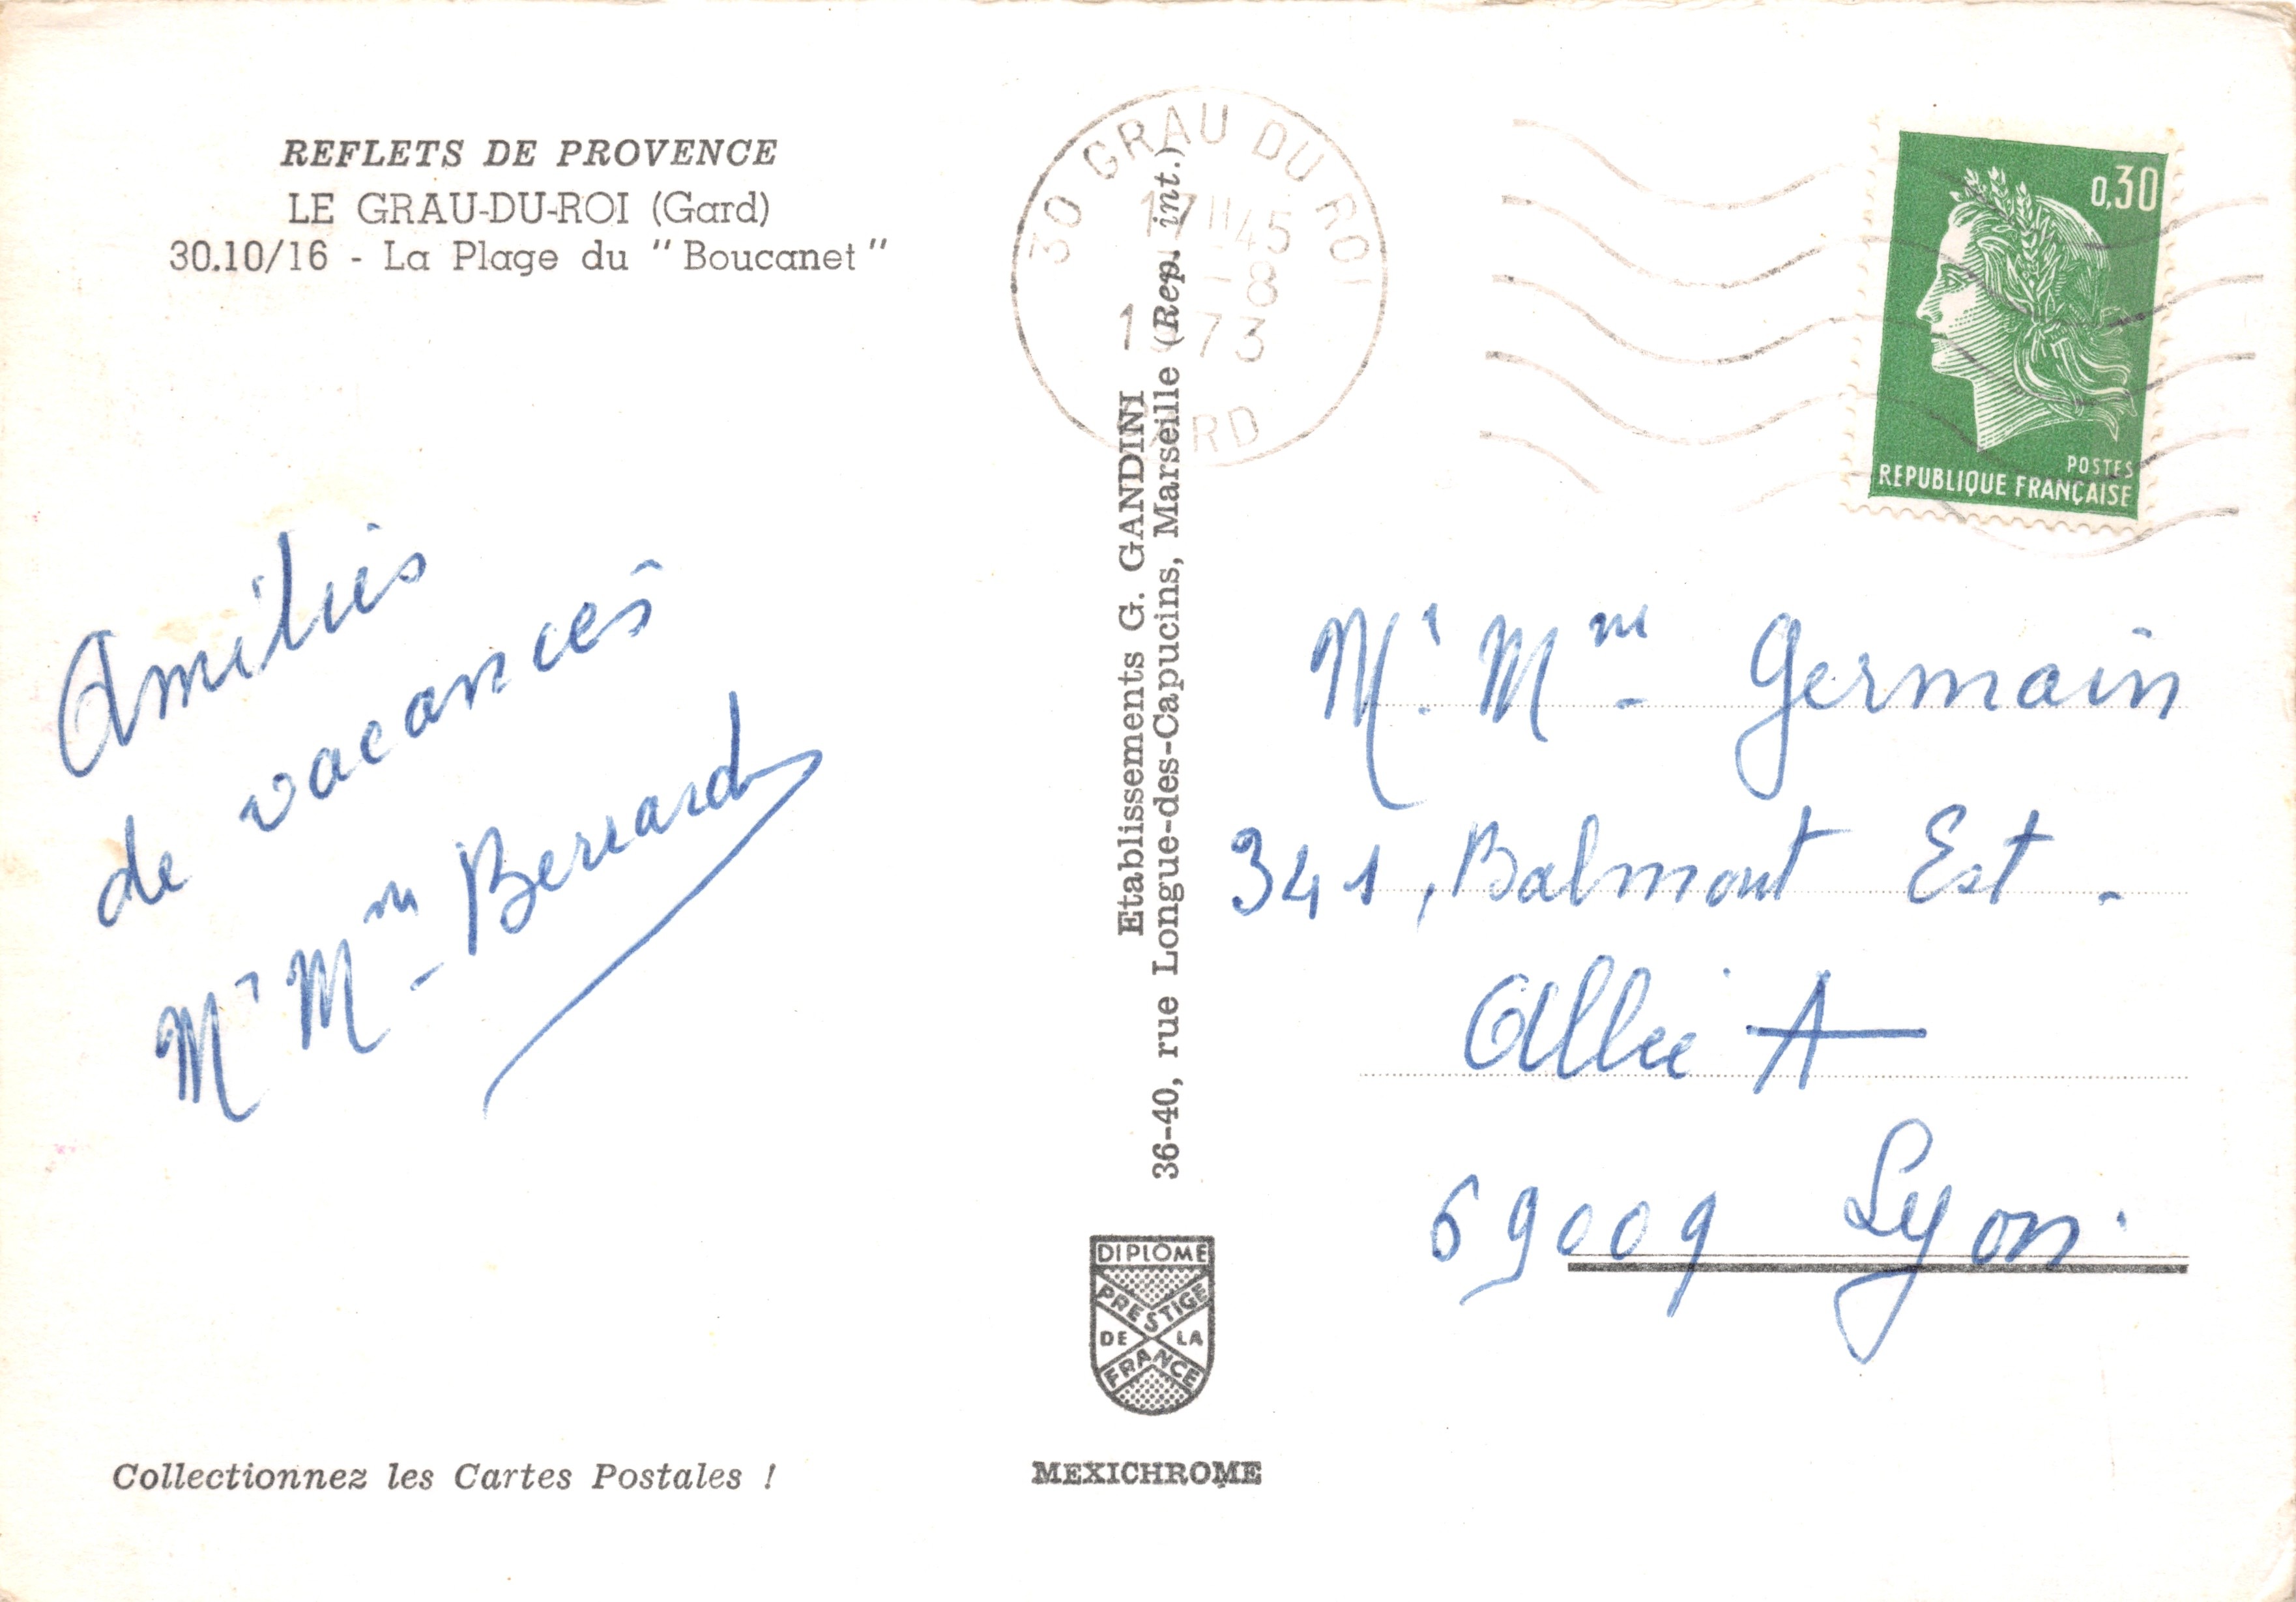 REFLETS DE PROVENCE
LE GRAU-DU-ROI (Gard)
30.10/16 - La Plage du "Boucanet"
Amitiés
de vacances
Mr Mme Berrard
Collectionnez les Cartes Postales !
30 GRAU DU ROI
17H45
-8
1973
GARD
Etablissements G. GANDINI
36-40, rue Longue-des-Capucins, Marseille (Rep. int.)
DIPLOME
PRESTIGE
DE LA
FRANCE
MEXICHROME
0,30
POSTES
REPUBLIQUE FRANÇAISE
Mr. Mme Germain
341, Balmont Est.
Allée A
69009 Lyon.